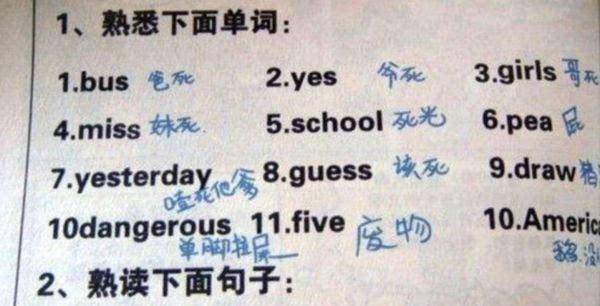 1、熟悉下面单词：
1.bus 爸死 2.yes 爷死 3.girls 哥死
4.miss 妹死 5.school 死光 6.pea 屁
7.yesterday 噎死他爹 8.guess 该死 9.draw 猪
10dangerous 单脚拉屎 11.five 废物 10.Americ
2、熟读下面句子：